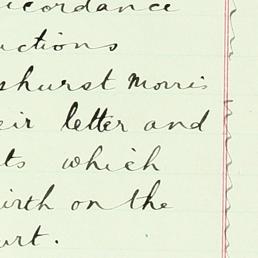 ccordance
uctions
shurst Morris
eir letter and
ts which
irth on the
urt.